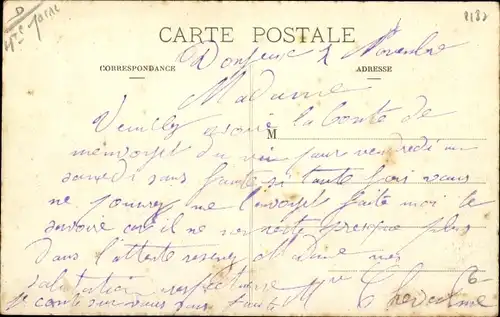 Hte Marne
2132
CARTE POSTALE
Donjeux 2 Novembre
CORRESPONDANCE
ADRESSE
Madame
Veuilly avoir la bonté de
M
menvoyer du vin pour vendredi ou
samedi sans faute si toute fois vous
ne pouvez me l'envoyer faite moi le
savoir car il ne me reste presque plus
Dans l'attente recevez Madame mes
salutation respectueuse
Je conte sur vous sans faute
6-